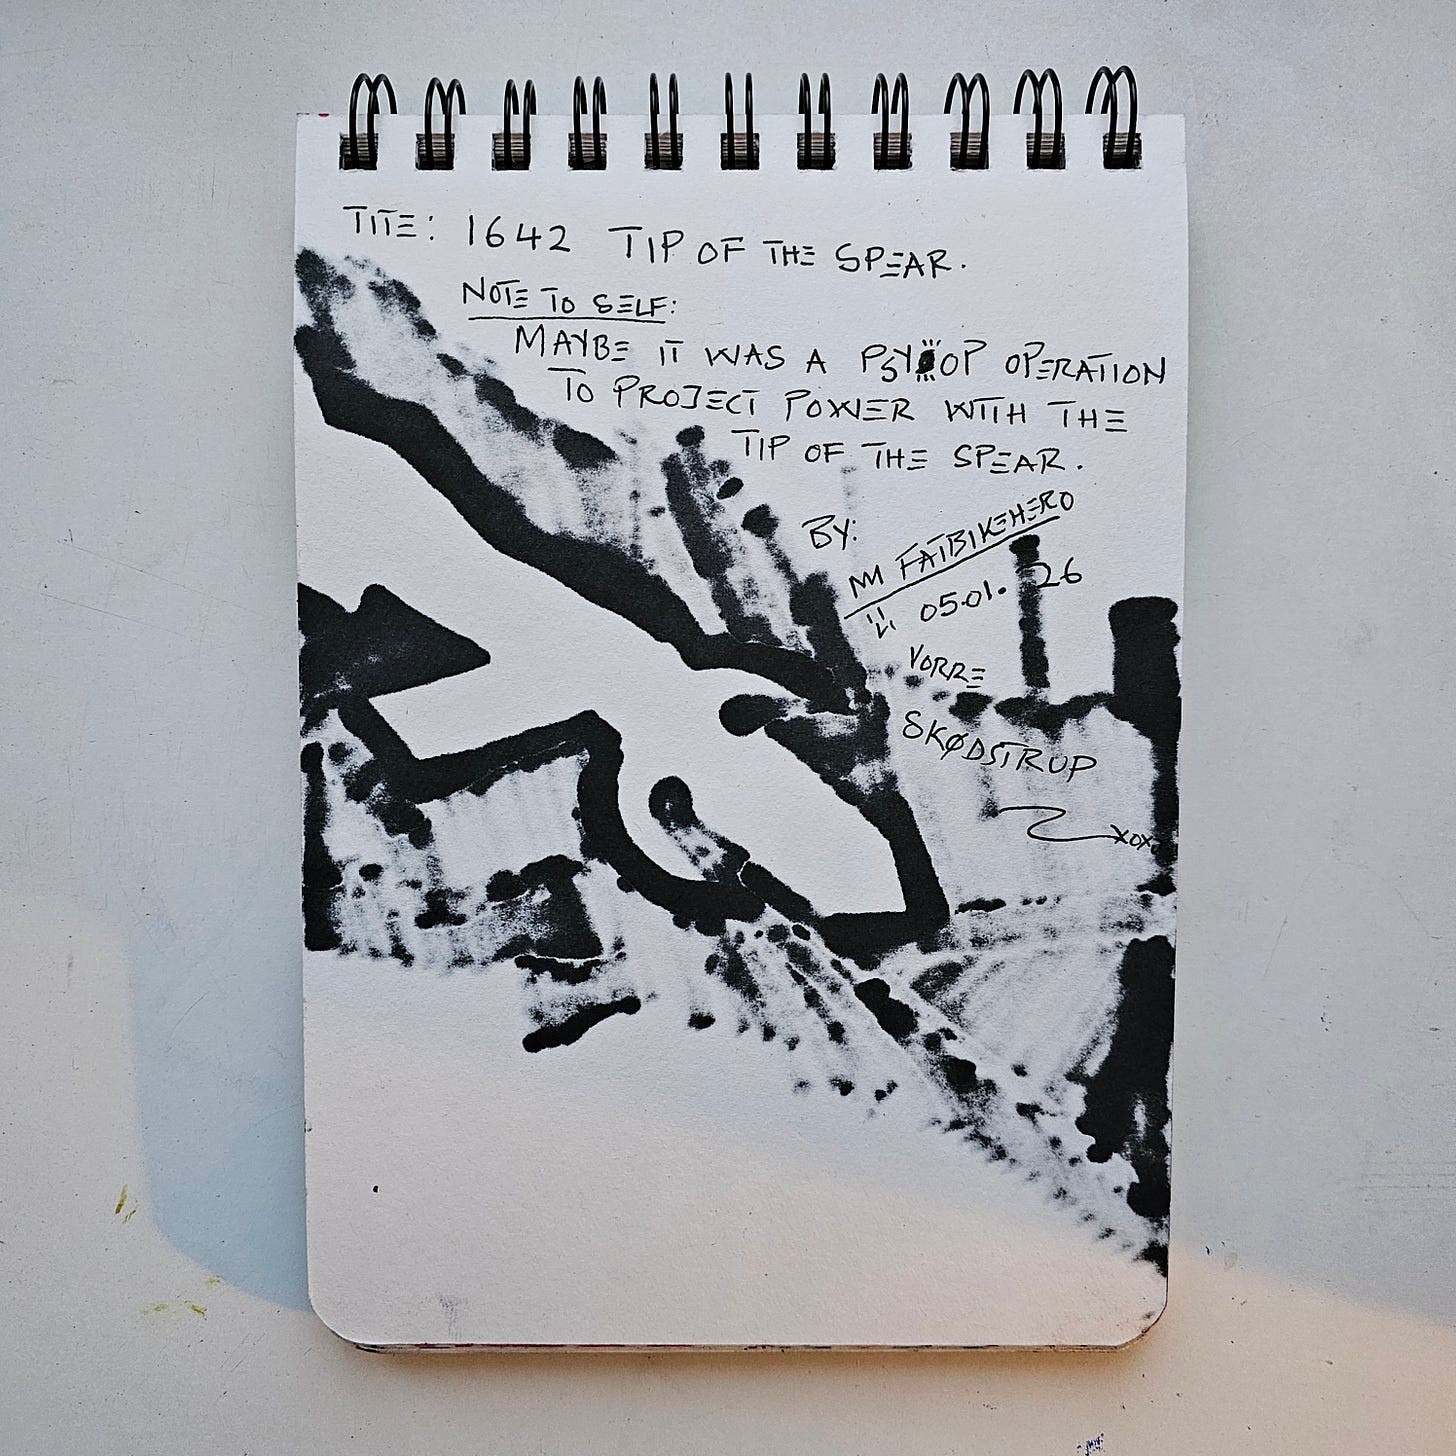 TITE: 1642 TIP OF THE SPEAR.
NOTE TO SELF:
MAYBE IT WAS A PSYOP OPERATION
TO PROJECT POWER WITH THE
TIP OF THE SPEAR.
BY:
FATBIKEHERO
05.01.26
VORRE
SKØDSTRUP
XOX